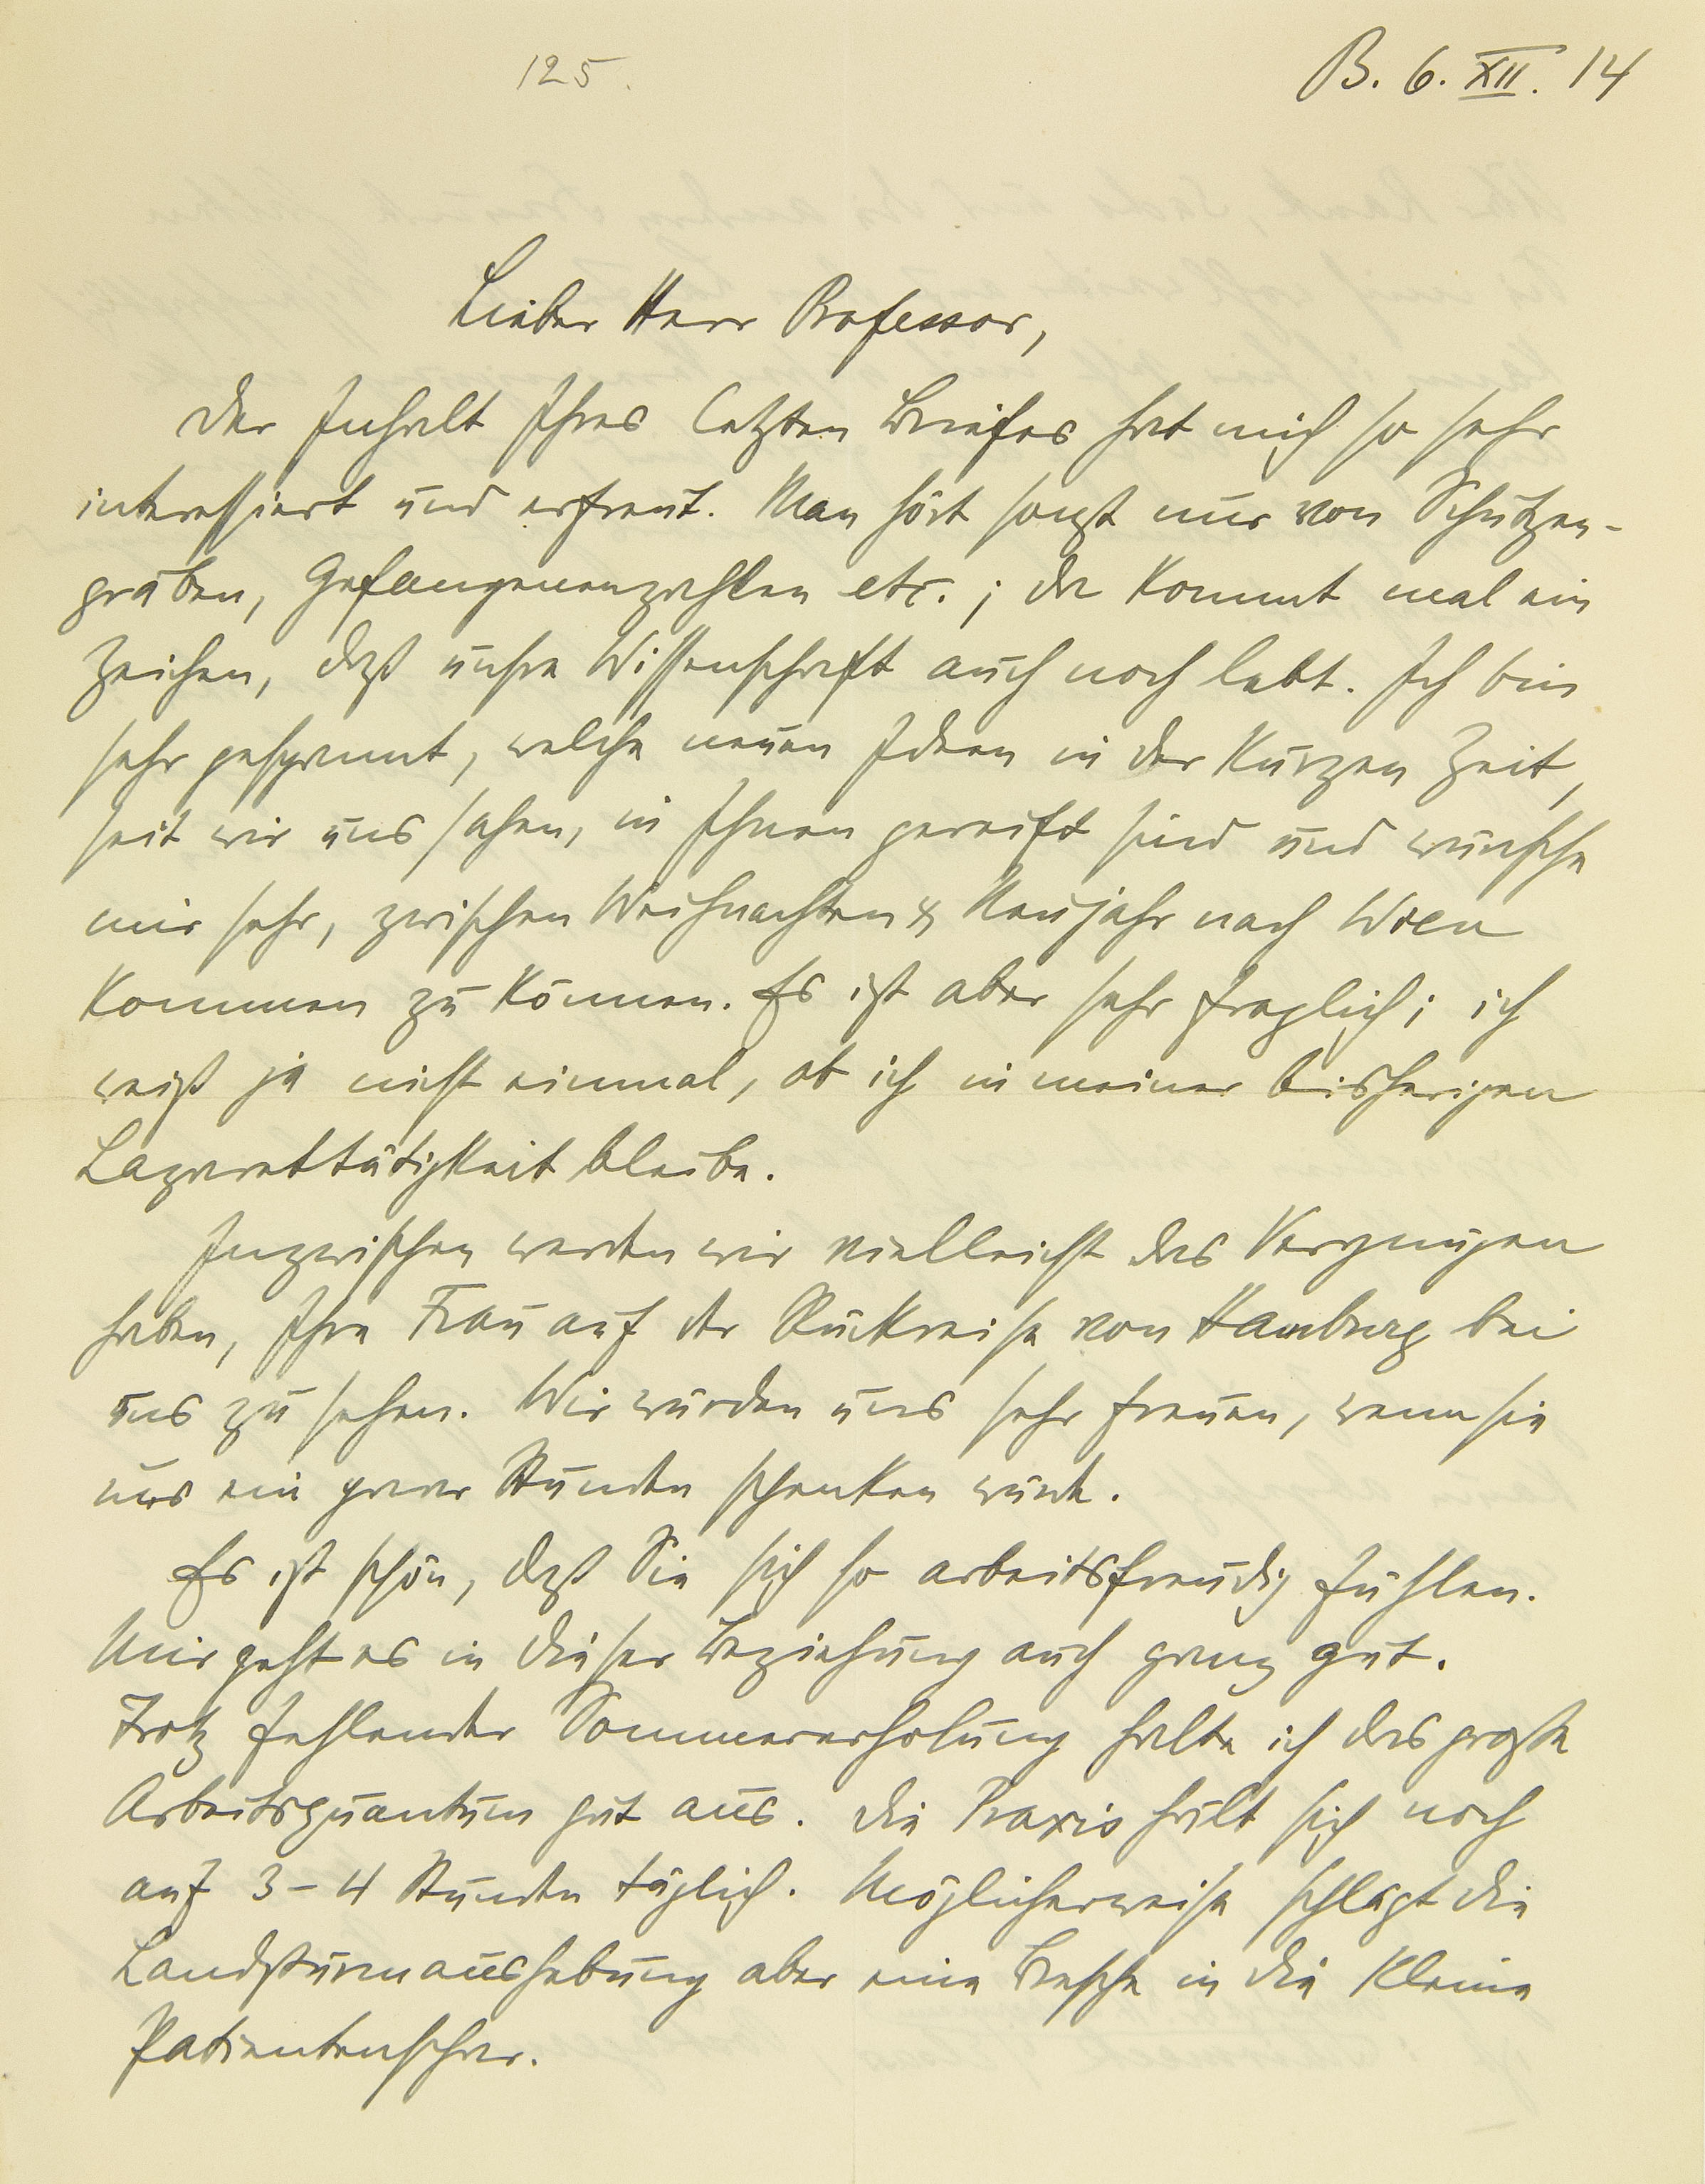 125.
B. 6. XII. 14
Lieber Herr Professor,
Der Inhalt Ihres letzten Briefes hat mich so sehr
interessiert und erfreut. Man hört sonst nur von Schützen-
gräben, Gefangenenzahlen etc.; da kommt mal ein
Zeichen, daß unsre Wissenschaft auch noch lebt. Ich bin
sehr gespannt, welche neuen Ideen in der kurzen Zeit,
seit wir uns sahen, in Ihnen gereift sind und wünsche
mir sehr, zwischen Weihnachten & Neujahr nach Wien
kommen zu können. Es ist aber sehr fraglich; ich
weiß ja nicht einmal, ob ich in meiner bisherigen
Lazarettätigkeit bleibe.
Inzwischen werden wir vielleicht das Vergnügen
haben, Ihre Frau auf der Rückreise von Hamburg bei
uns zu sehen. Wir würden uns sehr freuen, wenn sie
uns ein paar Stunden schenken würde.
Es ist schön, daß Sie sich so arbeitsfreudig fühlen.
Mir geht es in dieser Beziehung auch ganz gut.
Trotz fehlender Sommererholung halte ich das große
Arbeitsquantum gut aus. Die Praxis hält sich noch
auf 3–4 Stunden täglich. Möglicherweise schlägt die
Landsturmaushebung aber eine Bresche in die kleine
Patientenschar.